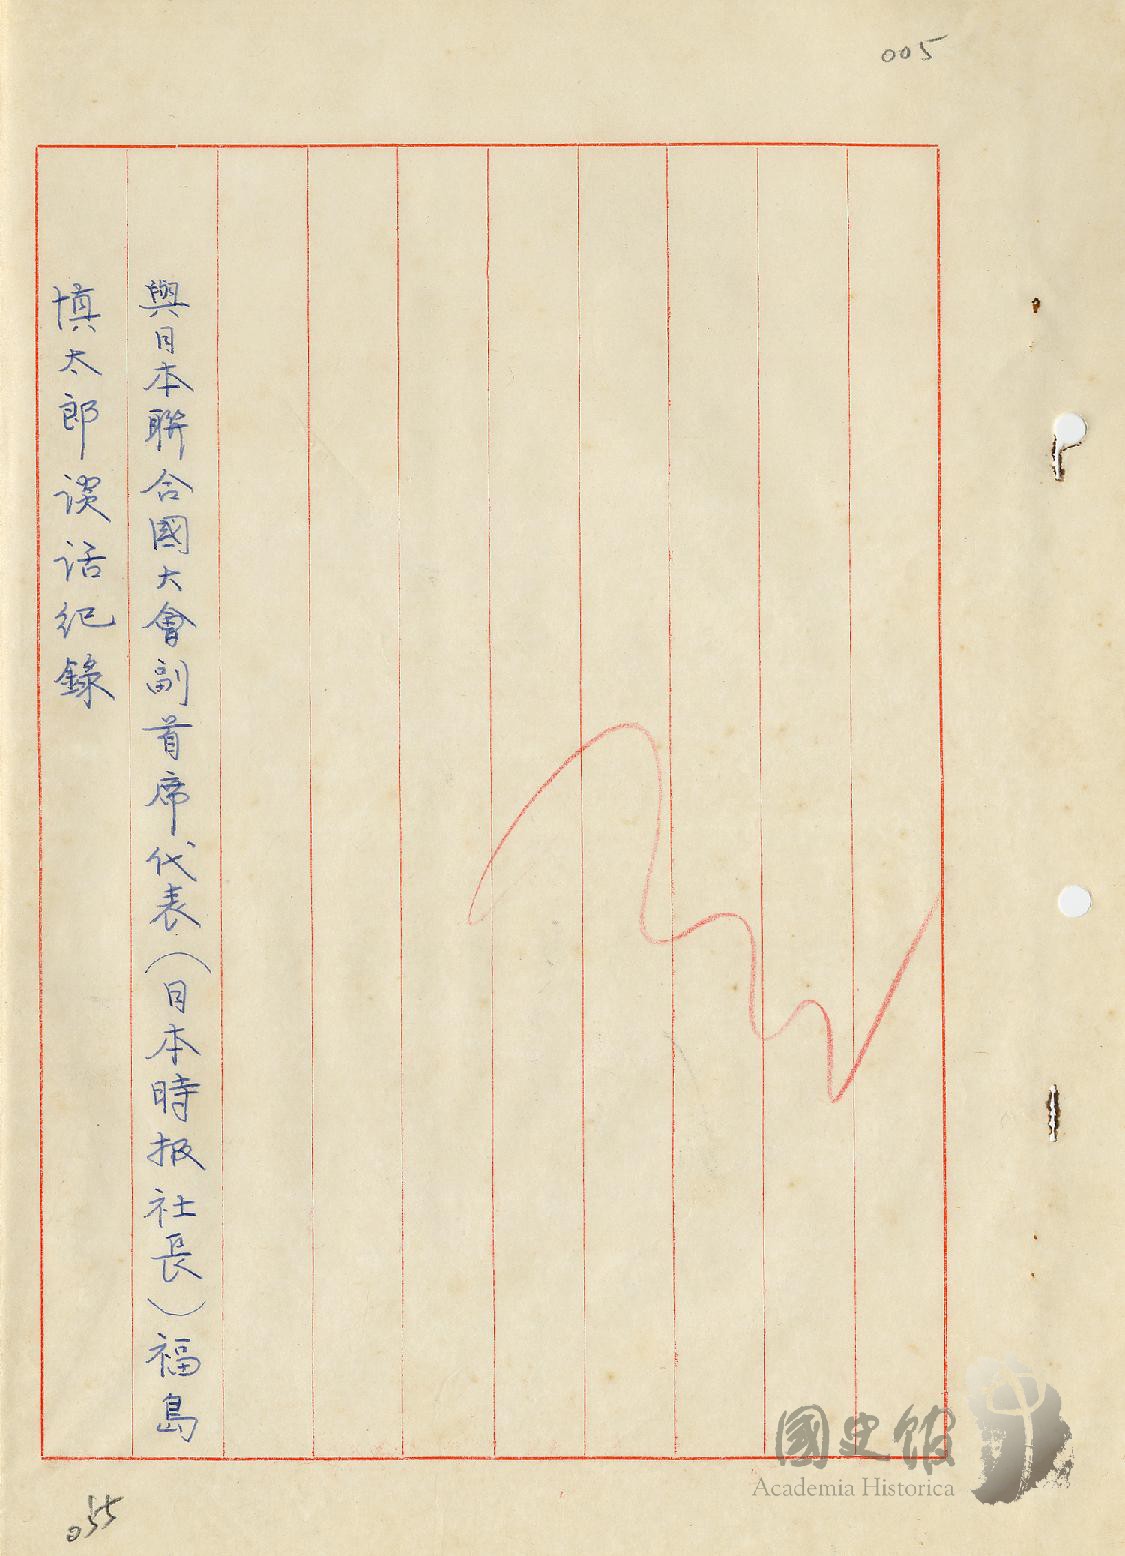 005
與日本聯合國大會副首席代表(日本時报社長)福島
慎太郎談話紀錄
055
國史館
Academia Historica